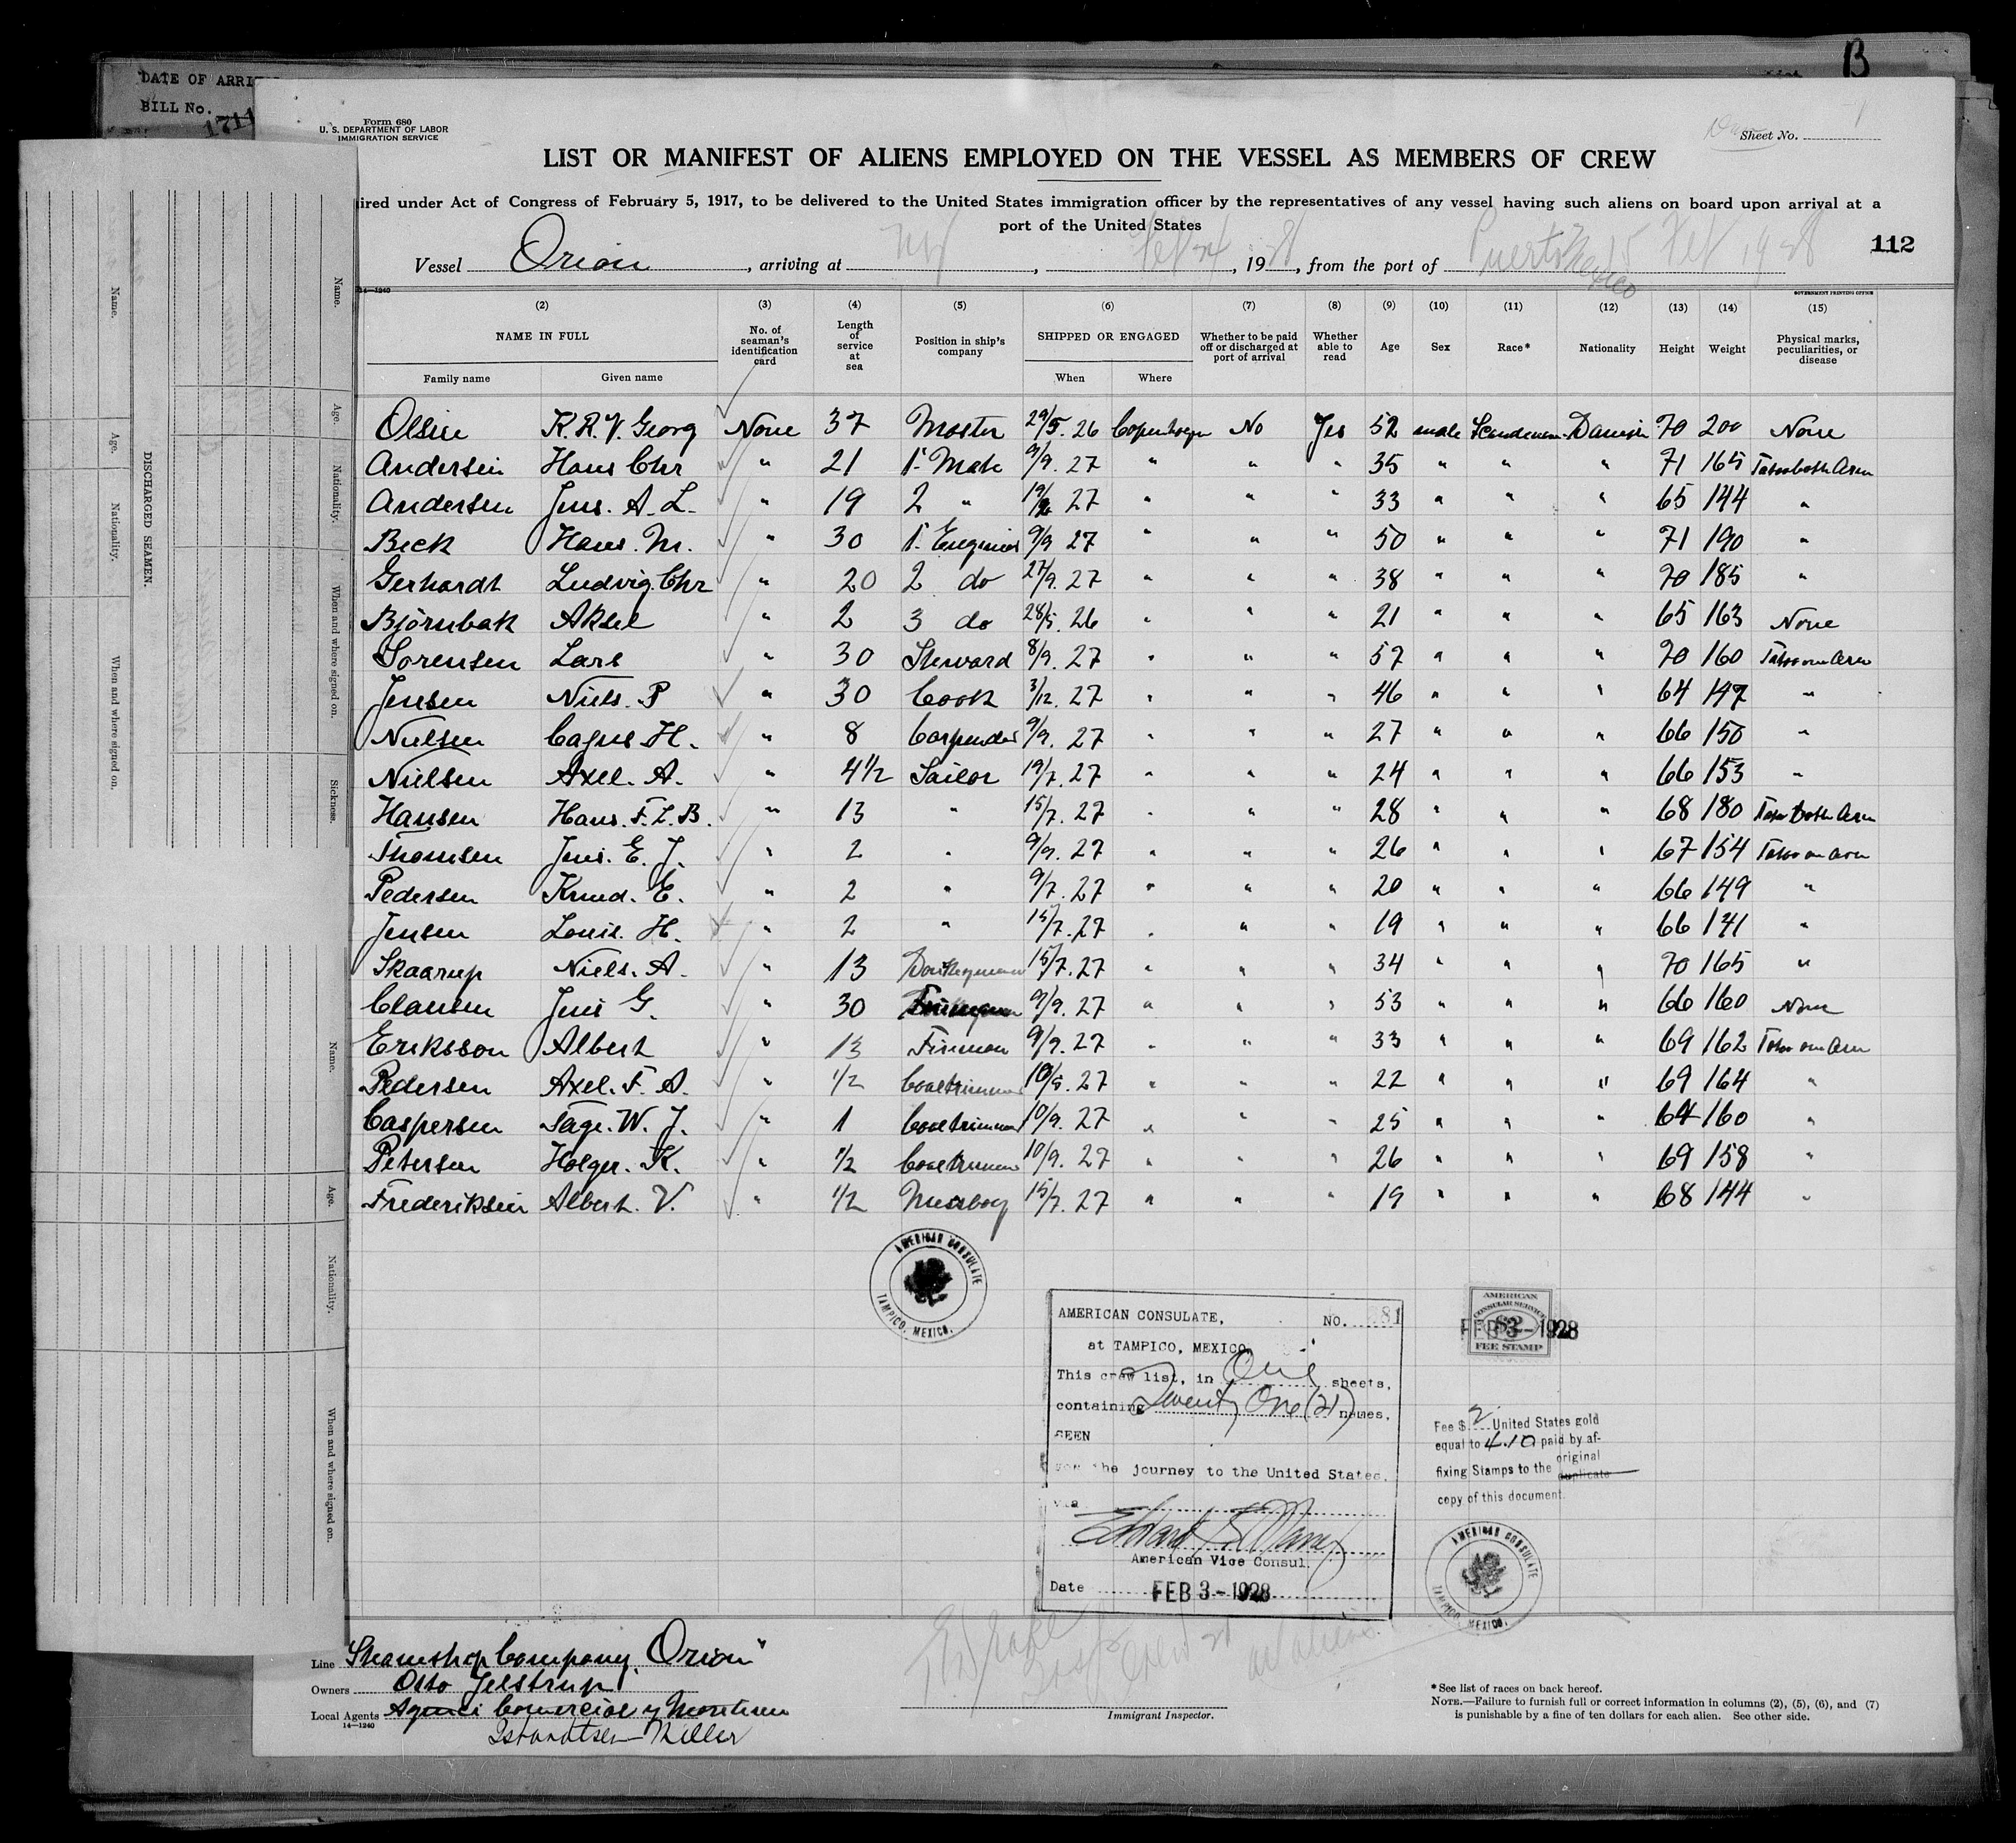 B
DATE OF ARRI
BILL No.
1711
Form 680
U. S. DEPARTMENT OF LABOR
IMMIGRATION SERVICE
Sheet No. 1
LIST OR MANIFEST OF ALIENS EMPLOYED ON THE VESSEL AS MEMBERS OF CREW
ired under Act of Congress of February 5, 1917, to be delivered to the United States immigration officer by the representatives of any vessel having such aliens on board upon arrival at a
port of the United States
112
Vessel Orion, arriving at NY, Feb 24, 1928, from the port of Puerto Mexico 15 Feb 1928
14—1240
GOVERNMENT PRINTING OFFICE
(2) (3) (4) (5) (6) (7) (8) (9) (10) (11) (12) (13) (14) (15)
NAME IN FULL No. of seaman's identification card Length of service at sea Position in ship's company SHIPPED OR ENGAGED Whether to be paid off or discharged at port of arrival Whether able to read Age Sex Race* Nationality Height Weight Physical marks, peculiarities, or disease
Family name Given name When Where
Olsen K. R. V. Georg None 37 Master 29/5. 26 Copenhagen No Yes 52 male Scandinavn. Danish 70 200 None
Andersen Hans Chr " 21 1. Mate 9/9. 27 " " " 35 " " " 71 165 Tatoo both Arm
Andersen Jens. A. L. " 19 2 " 27 " " " 33 " " " 65 144 "
Beck Hans. M. " 30 1. Engineer 9/9 27 " " " 50 " " " 71 190 "
Gerhardt Ludvig. Chr " 20 2 do 27/9. 27 " " " 38 " " " 70 185 "
Björnbak Aksel " 2 3 do 28/5. 26 " " " 21 " " " 65 163 None
Sorensen Lars " 30 Steward 8/9. 27 " " " 57 " " " 70 160 Tatoo on Arm
Jensen Niels. P " 30 Cook 3/12. 27 " " " 46 " " " 64 147 "
Nielsen H. " 8 Carpender 9/9. 27 " " " 27 " " " 66 150 "
Nielsen Axel. A. " 4½ Sailor 19/7. 27 " " " 24 " " " 66 153 "
Hansen Hans. F. L. B. " 13 " 15/7. 27 " " " 28 " " " 68 180 Tatoo both Arm
Thomsen Jens. E. J. " 2 " 9/9. 27 " " " 26 " " " 67 154 Tatoo on arm
Pedersen Knud. E. " 2 " 9/7. 27 " " " 20 " " " 66 149 "
Jensen Louis. H. " 2 " 15/7. 27 " " " 19 " " " 66 141 "
Skaarup Niels. A. " 13 Donkeyman 15/7. 27 " " " 34 " " " 70 165 "
Clausen Jens G. " 30 9/9. 27 " " " 53 " " " 66 160 None
Eriksson Albert " 13 Fireman 9/9. 27 " " " 33 " " " 69 162 Tatoo on Arm
Pedersen Axel. F. A. " ½ Coaltrimmer 10/9. 27 " " " 22 " " " 69 164 "
Caspersen Tage. W. J. " 1 Coaltrimmer 10/9. 27 " " " 25 " " " 64 160 "
Petersen Holger. K. " ½ Coaltrimmer 10/9. 27 " " " 26 " " " 69 158 "
Frederiksen Albert. V. " ½ Messboy 15/7. 27 " " " 19 " " " 68 144 "
AMERICAN CONSULATE
TAMPICO, MEXICO.
AMERICAN CONSULATE, No. 81
at TAMPICO, MEXICO
This crew list, in One sheets,
containing Twenty One (21) names.
SEEN
For the journey to the United States,
via
American Vice Consul
Date FEB 3-1928
AMERICAN
CONSULAR SERVICE
$2
FEE STAMP
FEB 3-1928
Fee $ 2 United States gold
equal to 4.10 paid by af-
fixing Stamps to the original
duplicate
copy of this document.
AMERICAN CONSULATE
TAMPICO, MEXICO.
Line Steamship Company "Orion"
Owners Otto Jelstrup
Local Agents
14—1240
Immigrant Inspector.
* See list of races on back hereof.
NOTE.—Failure to furnish full or correct information in columns (2), (5), (6), and (7)
is punishable by a fine of ten dollars for each alien. See other side.
DISCHARGED SEAMEN.
Name.
Age.
Nationality.
When and where signed on.
Name.
Age.
Nationality.
When and where signed on.
Sickness.
Name.
Age.
Nationality.
When and where signed on.